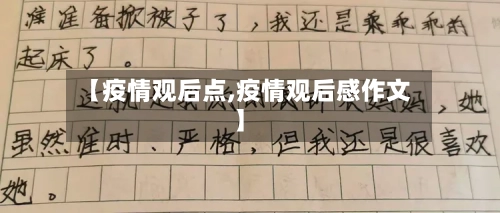 准准备掀被子了，我还是乘乖乖的
起床了。
【疫情观后点,疫情观后感作文
】
妈妈，她
虽然准时、严格，但我还是很喜欢
她。